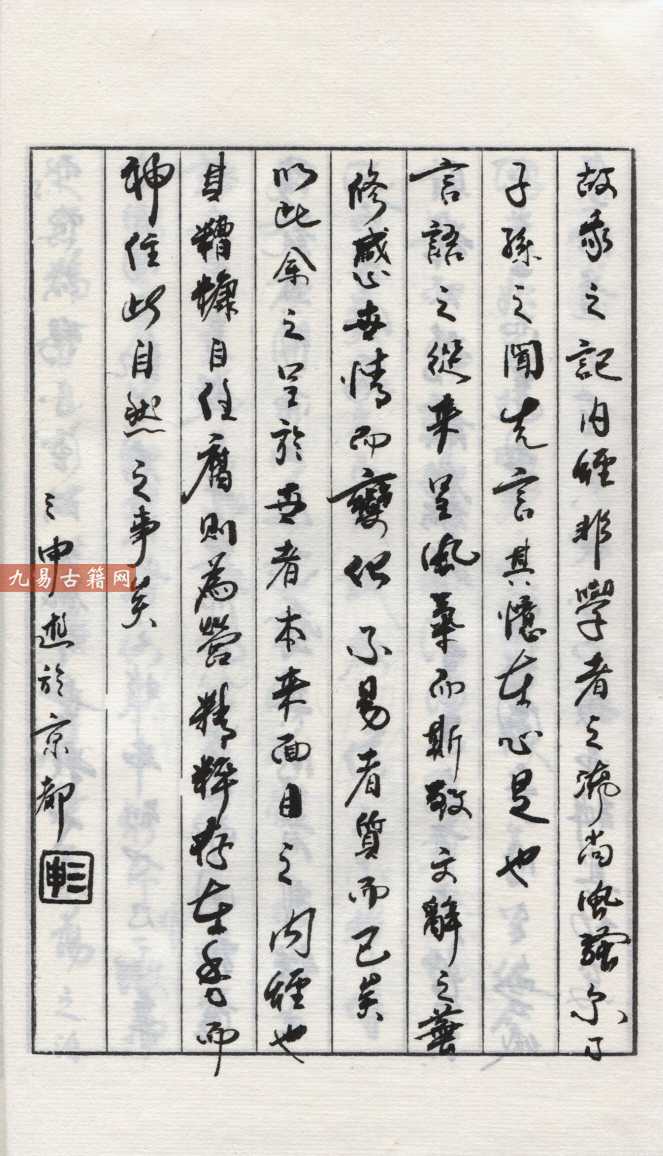 故家之記內經非學者之流尚風騷尔耳
子孫之聞先言其憶在心是也
言語之從來呈風氣而斯致文辭之蕪
修感世情而變化不易者質而已矣
以此余之呈於世者本来面目之内經也
其糟糠自住腐則為營精粹存在身而
神住此自然之事矣
三申述於京都
三申
九易古籍网